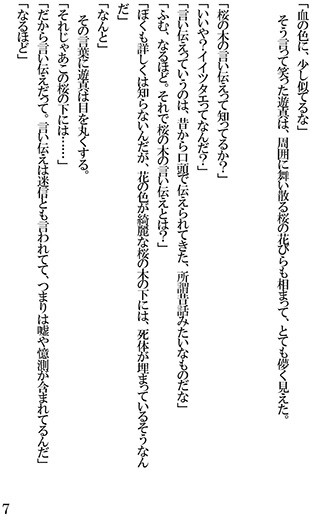 「血の色に、少し似てるな」
　そう言って笑った遊真は、周囲に舞い散る桜の花びらも相まって、とても儚く見えた。
「桜の木の言い伝えって知ってるか？」
「いいや？イイツタエってなんだ？」
「言い伝えっていうのは、昔から口頭で伝えられてきた、所謂昔話みたいなものだな」
「ふむ、なるほど。それで桜の木の言い伝えとは？」
「ぼくも詳しくは知らないんだが、花の色が綺麗な桜の木の下には、死体が埋まっているそうなん
だ」
「なんと」
　その言葉に遊真は目を丸くする。
「それじゃあこの桜の下には……」
「だから言い伝えだって。言い伝えは迷信とも言われてて、つまりは嘘や憶測が含まれてるんだ」
「なるほど」
7